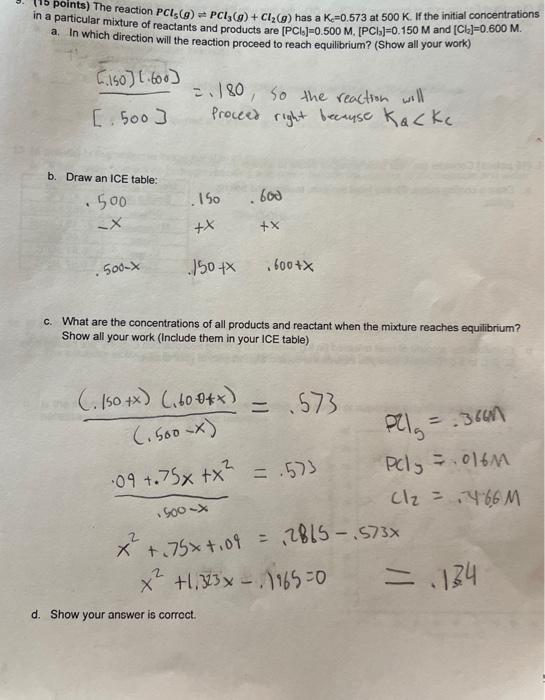 (15 points) The reaction PCl₅(g) ⇌ PCl₃(g) + Cl₂(g) has a Kc=0.573 at 500 K. If the initial concentrations
in a particular mixture of reactants and products are [PCl₅]=0.500 M, [PCl₃]=0.150 M and [Cl₂]=0.600 M.
a. In which direction will the reaction proceed to reach equilibrium? (Show all your work)
[.150] [.600]
[.500]
= .180, so the reaction will
Proceed right because Ka < Kc
b. Draw an ICE table:
.500 .150 .600
-x +x +x
.500-x .150+x .600+x
c. What are the concentrations of all products and reactant when the mixture reaches equilibrium?
Show all your work (Include them in your ICE table)
(.150+x) (.600+x) = .573
(.500-x)
PCl₅ = .366M
.09 +.75x +x² = .573
.500-x
PCl₃ = .016M
Cl₂ = .466M
x² +.75x+.09 = .2865-.573x
x² +1.323x -.1965=0 = .134
d. Show your answer is correct.